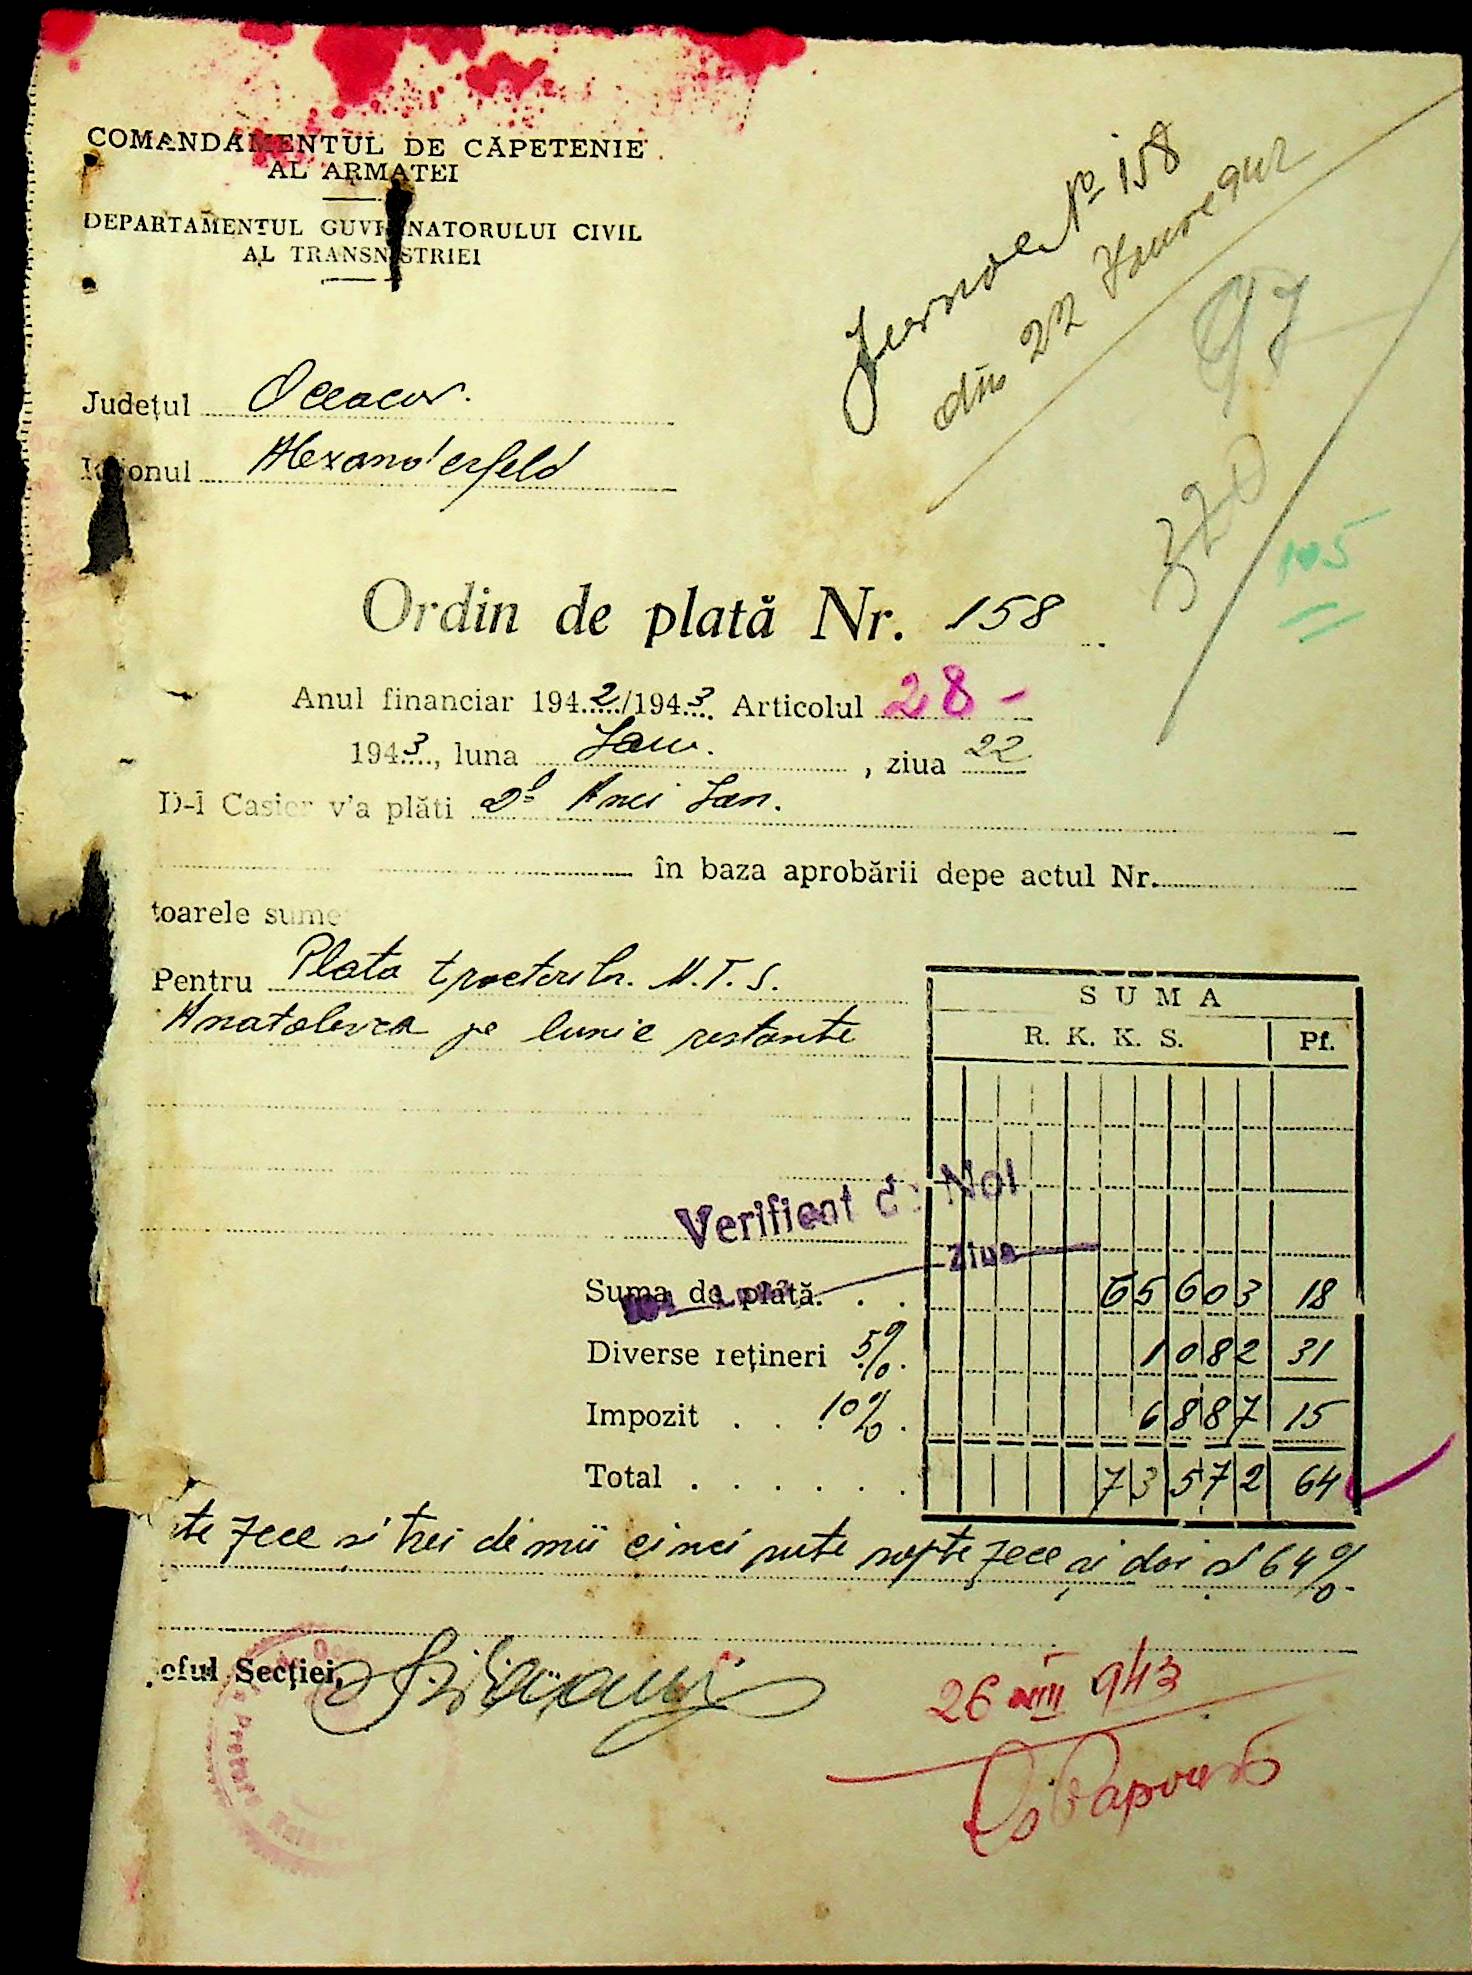 COMANDAMENTUL DE CĂPETENIE
AL ARMATEI
DEPARTAMENTUL GUVERNATORULUI CIVIL
AL TRANSNISTRIEI
Jurnal No 158
din 22
97
Județul Oceacov.
Raionul Alexanderfeld
320
105
Ordin de plată Nr. 158
Anul financiar 1942/1943. Articolul 28 -
1943, luna Ian. , ziua 22
D-l Casier v'a plăti Dl Anci Ian.
în baza aprobării depe actul Nr.
toarele sume
Pentru Plata tractorilor. M.T.S.
Anatolevca pe lunie restante
SUMA
R. K. K. S. Pf.
Verificat de Noi
Ziua
Suma de plată. . . 65603 18
Diverse rețineri 5%. 1082 31
Impozit . . 10%. 6887 15
Total . . . . . . 73572 64
te zece si trei de mii cinci sute sapte zece si doi si 64%
eful Secției,
26 943